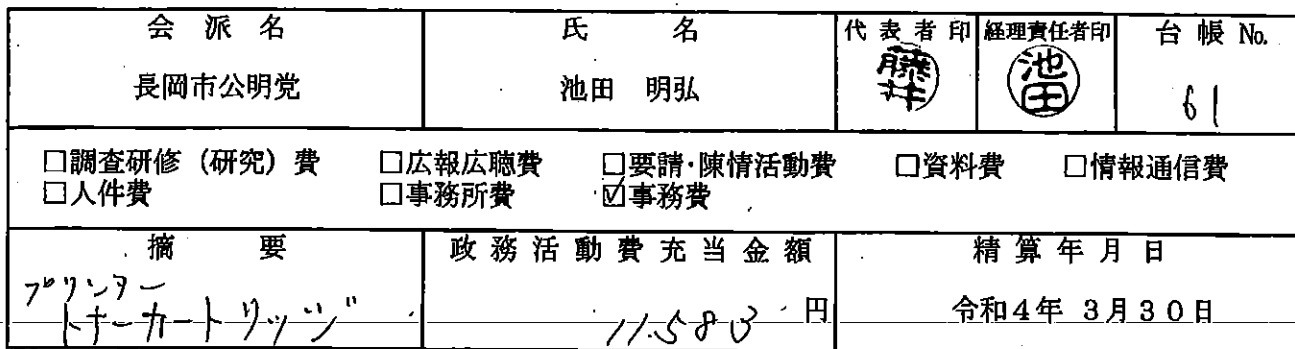 会派名 氏名 代表者印 経理責任者印 台帳No.
長岡市公明党 池田 明弘 藤井 池田 61
□調査研修（研究）費 □広報広聴費 □要請・陳情活動費 □資料費 □情報通信費
□人件費 □事務所費 ☑事務費
摘要 政務活動費充当金額 精算年月日
プリンター
トナーカートリッジ 11.583円 令和4年 3月30日